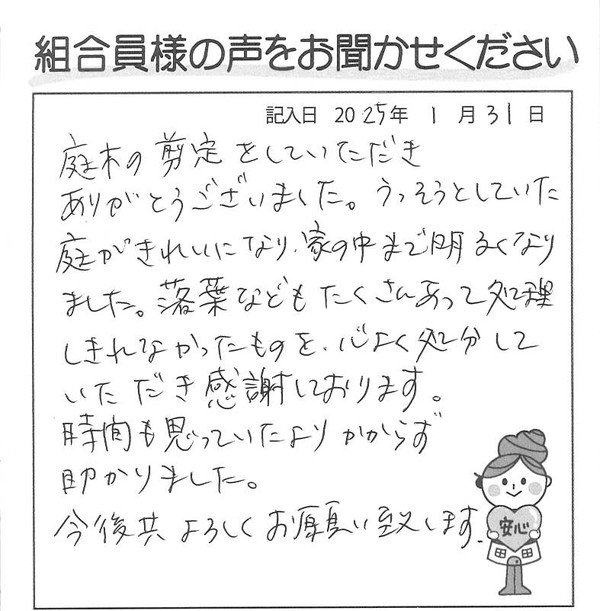 組合員様の声をお聞かせください
記入日 2025年 1月31日
庭木の剪定をしていただき
ありがとうございました。うっそうとしていた
庭がきれいになり、家の中まで明るくなり
ました。落葉などもたくさんあって処理
しきれなかったものを、心よく処分して
いただき感謝しております。
時間も思っていたよりかからず
助かりました。
今後共よろしくお願い致します。
安心